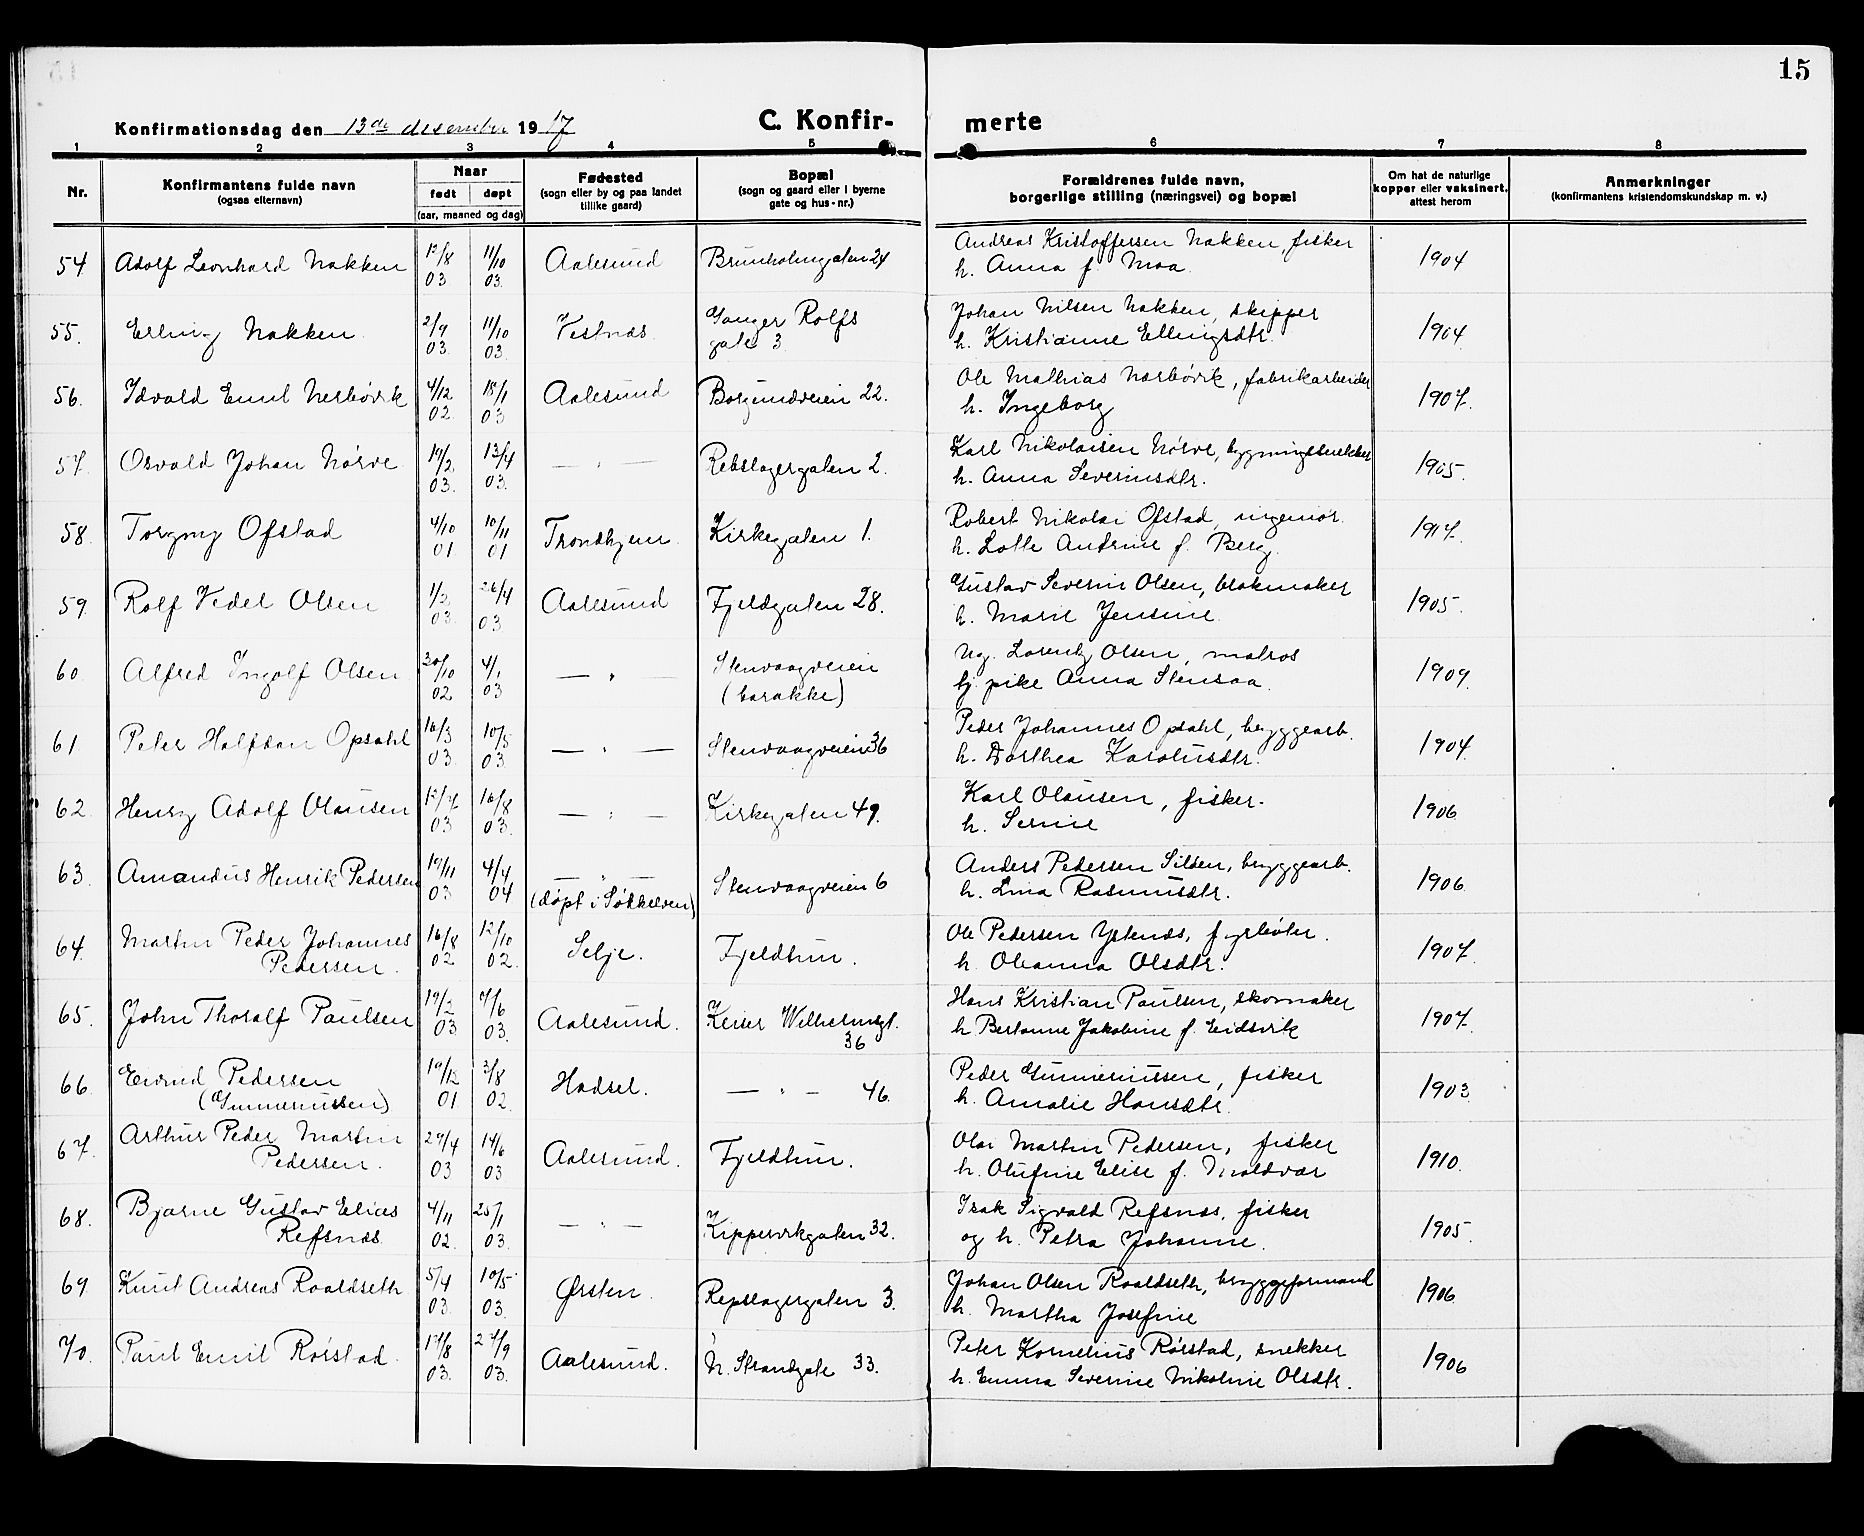 15
Konfirmationsdag den 13de desember 1917
C. Konfirmerte
1 2 3 4 5 6 7 8
Nr.
Konfirmantens fulde navn
(ogsaa efternavn)
Naar
født døpt
(aar, maaned og dag)
Fødested
(sogn eller by og paa landet
tillike gaard)
Bopæl
(sogn og gaard eller i byerne
gate og hus-nr.)
Forældrenes fulde navn,
borgerlige stilling (næringsvei) og bopæl
Om hat de naturlige
kopper eller vaksinert,
attest herom
Anmerkninger
(konfirmantens kristendomskundskap m. v.)
54 Adolf Leonhard Nakken 12/8 03. 11/10 03. Aalesund Brunholmgaten 24 Andreas Kristoffersen Nakken, fisker 1904
h. Anna f. Moa.
55. Erling Nakken. 2/9 03. 11/10 03. Vestnæs. Ganger Rolfs Johan Nilsen Nakken, skipper 1904
gate 3. h. Kristianne Ellingsdtr.
56. Idvald Emil Nerbövik 4/12 02 18/1 03 Aalesund Borgundveien 22. Ole Mathias Nærbövik, fabrikarbeider 1907.
h. Ingeborg
57. Osvald Johan Nörve 19/2 03. 13/4 03. — " — Rebslagergaten 2. Karl Nikolaisen Nörve, bygningssnekker 1905.
h. Anna Severinsdtr.
58. Torgny Ofstad 4/10 01 10/11 01 Trondhjem. Kirkegaten 1. Robert Nikolai Ofstad, ingeniør. 1917.
h. Lotte Andrine f. Berg.
59. Rolf Vedel Olsen 1/3 03. 26/4 03 Aalesund Fjeldgaten 28. Gustav Severin Olsen, blokmaker 1905.
h. Marie Jensine.
60. Alfred Ingolf Olsen. 30/10 02 4/1 03 — " — Stenvaagveien Ug. Lorentz Olsen, matros 1909.
(barakke) tj. pike Anna Stensaa.
61 Peter Halfdan Opsahl 16/3 03. 10/5 03. — " — Stenvaagveien 36 Peder Johannes Opsahl, bryggearb. 1904.
h. Dorthea Karolusdtr.
62. Henry Adolf Olausen 12/7 03 16/8 03. — " — Kirkegaten 49. Karl Olausen, fisker. 1906
h. Serine
63. Amandus Henrik Pedersen 19/11 03 4/4 04 — " — Stenvaagveien 6 Anders Pedersen Silden, bryggearb. 1906
(döpt i Søkkelven) h. Lina Rasmusdtr.
64. Martin Peder Johannes 16/8 02 12/10 02. Selje. Fjeldtun. Ole Pedersen Ytenes, fyrböter. 1907.
Pedersen. h. Oleanna Olsdtr.
65. John Thoralf Paulsen 19/2 03 7/6 03. Aalesund. Keiser Wilhelmsgt. Hans Kristian Paulsen, skomaker 1907.
36 h. Bertonne Jakobine f. Eidsvik
66. Eivind Pedersen 19/12 01 3/8 02. Hadsel. — " — 46. Peder Gunneriussen, fisker 1903.
(Gunneriussen) h. Amalie Hansdtr.
67. Arthur Peder Martin 29/4 03 14/6 03 Aalesund. Fjeldtun. Olai Martin Pedersen, fisker 1910.
Pedersen. h. Olufine Elise f. Moldvær
68. Bjarne Gustav Elias 4/11 02. 25/1 03. — " — Kippervikgaten 32. Isak Sigvald Refsnæs, fisker 1905.
Refsnæs. og h. Petra Johanne.
69. Knut Andreas Roaldseth 5/4 03. 10/5 03. Ørsten. Repslagergaten 3. Johan Olsen Roaldseth, bryggeformand 1906
h. Martha Josefine
70. Paul Emil Rörstad. 17/8 03. 27/9 03. Aalesund. N. Strandgate 33. Peter Kornelius Rörstad, snekker 1906
h. Emma Severine Nikoline Olsdtr.